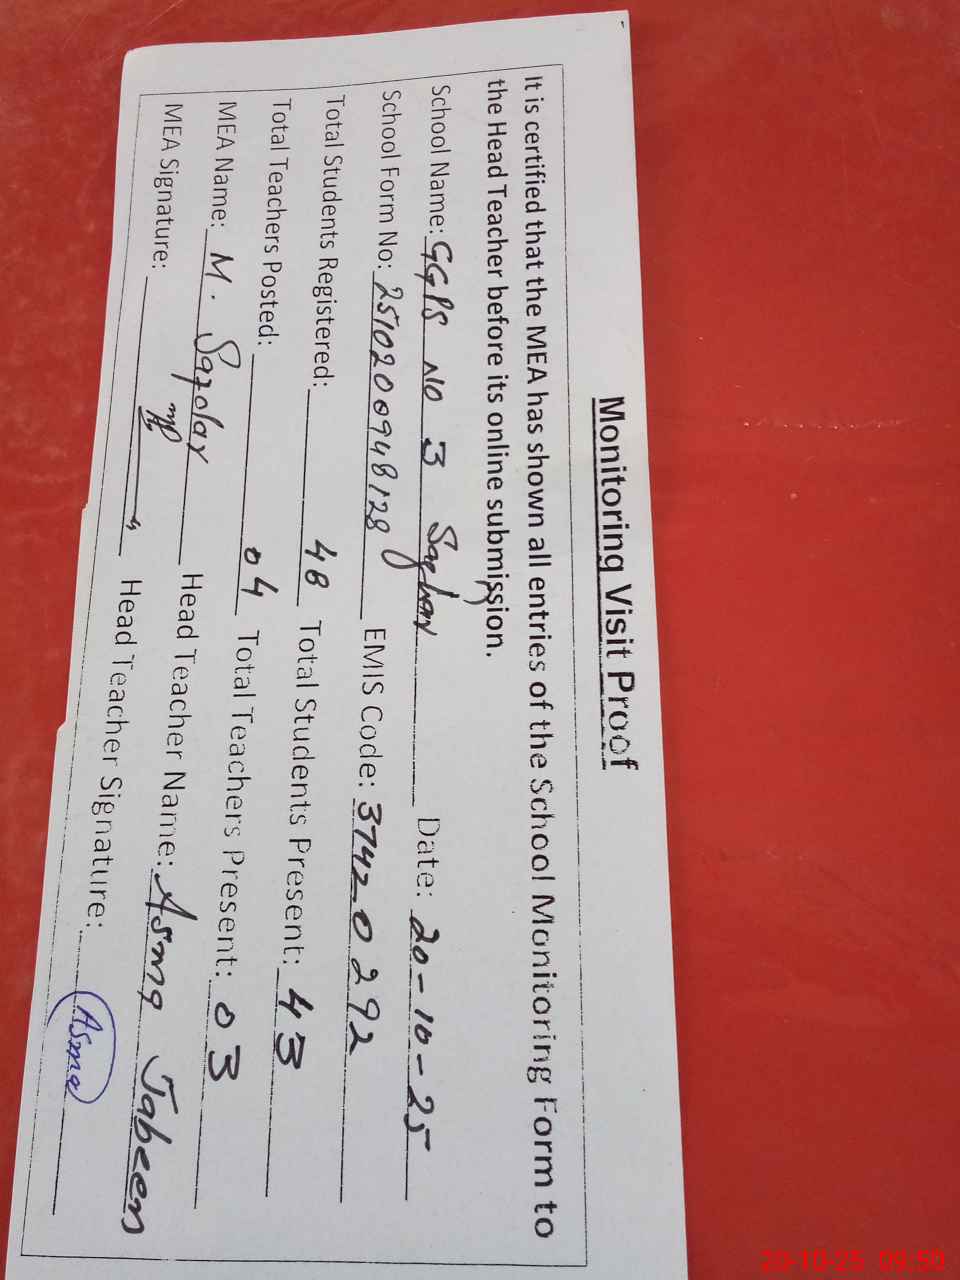 Monitoring Visit Proof
It is certified that the MEA has shown all entries of the School Monitoring Form to
the Head Teacher before its online submission.
School Name: GGPS NO 3 Date: 20-10-25
School Form No: 2510200948128 EMIS Code: 37420292
Total Students Registered: 48 Total Students Present: 43
Total Teachers Posted: 04 Total Teachers Present: 03
MEA Name: M. Head Teacher Name: Asma Jabeen
MEA Signature: Head Teacher Signature: Asma
20-10-25 09:50